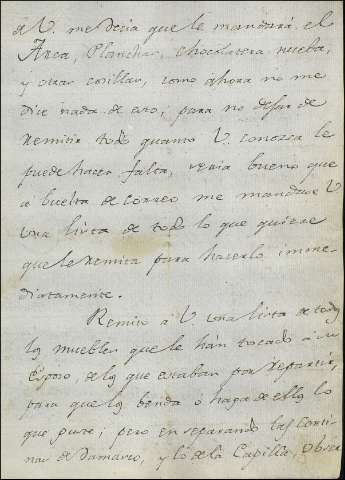 a V. me decia que le mandara, el
Arca, Planchas, chocolatera nueba,
y otras cosillas, como ahora no me
dice nada de esto; para no dejar de
remitir todo quanto V. conozca le
puede hacer falta, seria bueno que
a buelta de correo me mandase V
una lista de todo lo que quiere
que le remita para hacerlo imme-
diatamente.
Remito a V. una lista de todos
los muebles que le hán tocado á su
Esposo, de los que estaban por repartir,
para que los benda ó haga de ellos lo
que guste; pero en separando las Corti-
nas de Damasco, y lo de la Capilla,